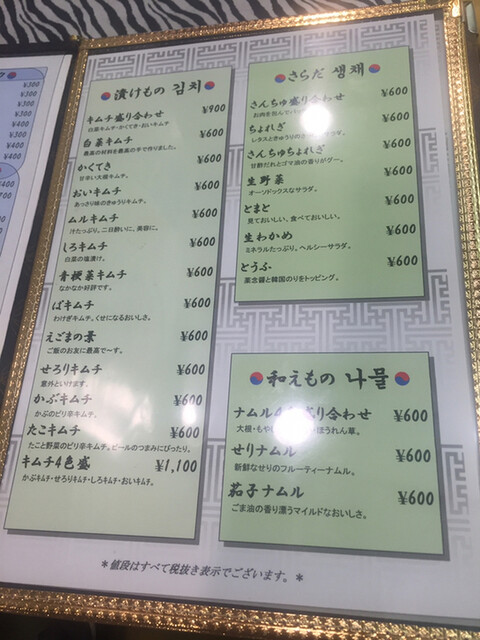 ¥300
¥300
¥300
¥300
¥400
¥400
漬けもの 김치
キムチ盛り合わせ ¥900
白菜キムチ・かくてき・おいキムチ
白菜キムチ ¥600
最高の材料を最高の手で作りました。
かくてき ¥600
甘辛い大根キムチ。
おいキムチ ¥600
あっさり味のきゅうりキムチ。
ムルキムチ ¥600
汁たっぷり、二日酔いに、美容に。
しろキムチ ¥600
白菜の塩漬け。
青梗菜キムチ ¥600
なかなか好評です。
ぱキムチ ¥600
わけぎキムチ。くせになるおいしさ。
えごまの葉 ¥600
ご飯のお友に最高で~す。
せろりキムチ ¥600
意外といけます。
かぶキムチ ¥600
かぶのピリ辛キムチ。
たこキムチ ¥600
たこと野菜のピリ辛キムチ。ビールのつまみにぴったり。
キムチ4色盛 ¥1,100
かぶキムチ・せろりキムチ・しろキムチ・おいキムチ。
さらだ 생채
さんちゅ盛り合わせ ¥600
お肉を包んで
ちょれぎ ¥600
レタスときゅうりの
さんちゅちょれぎ ¥600
甘酢だれとゴマ油の香りがグー。
生野菜 ¥600
オーソドックスなサラダ。
とまと ¥600
見ておいしい、食べておいしい。
生わかめ ¥600
ミネラルたっぷり、ヘルシーサラダ。
とうふ ¥600
薬念醤と韓国のりをトッピング。
和えもの 나물
ナムル 盛り合わせ ¥600
大根・もやし ほうれん草。
せりナムル ¥600
新鮮なせりのフルーティーナムル。
茄子ナムル ¥600
ごま油の香り漂うマイルドなおいしさ。
*値段はすべて税抜き表示でございます。*